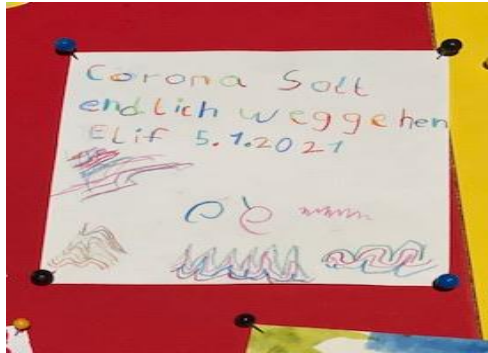 Corona Solt
endlich weggehen
Elif 5.1.2021